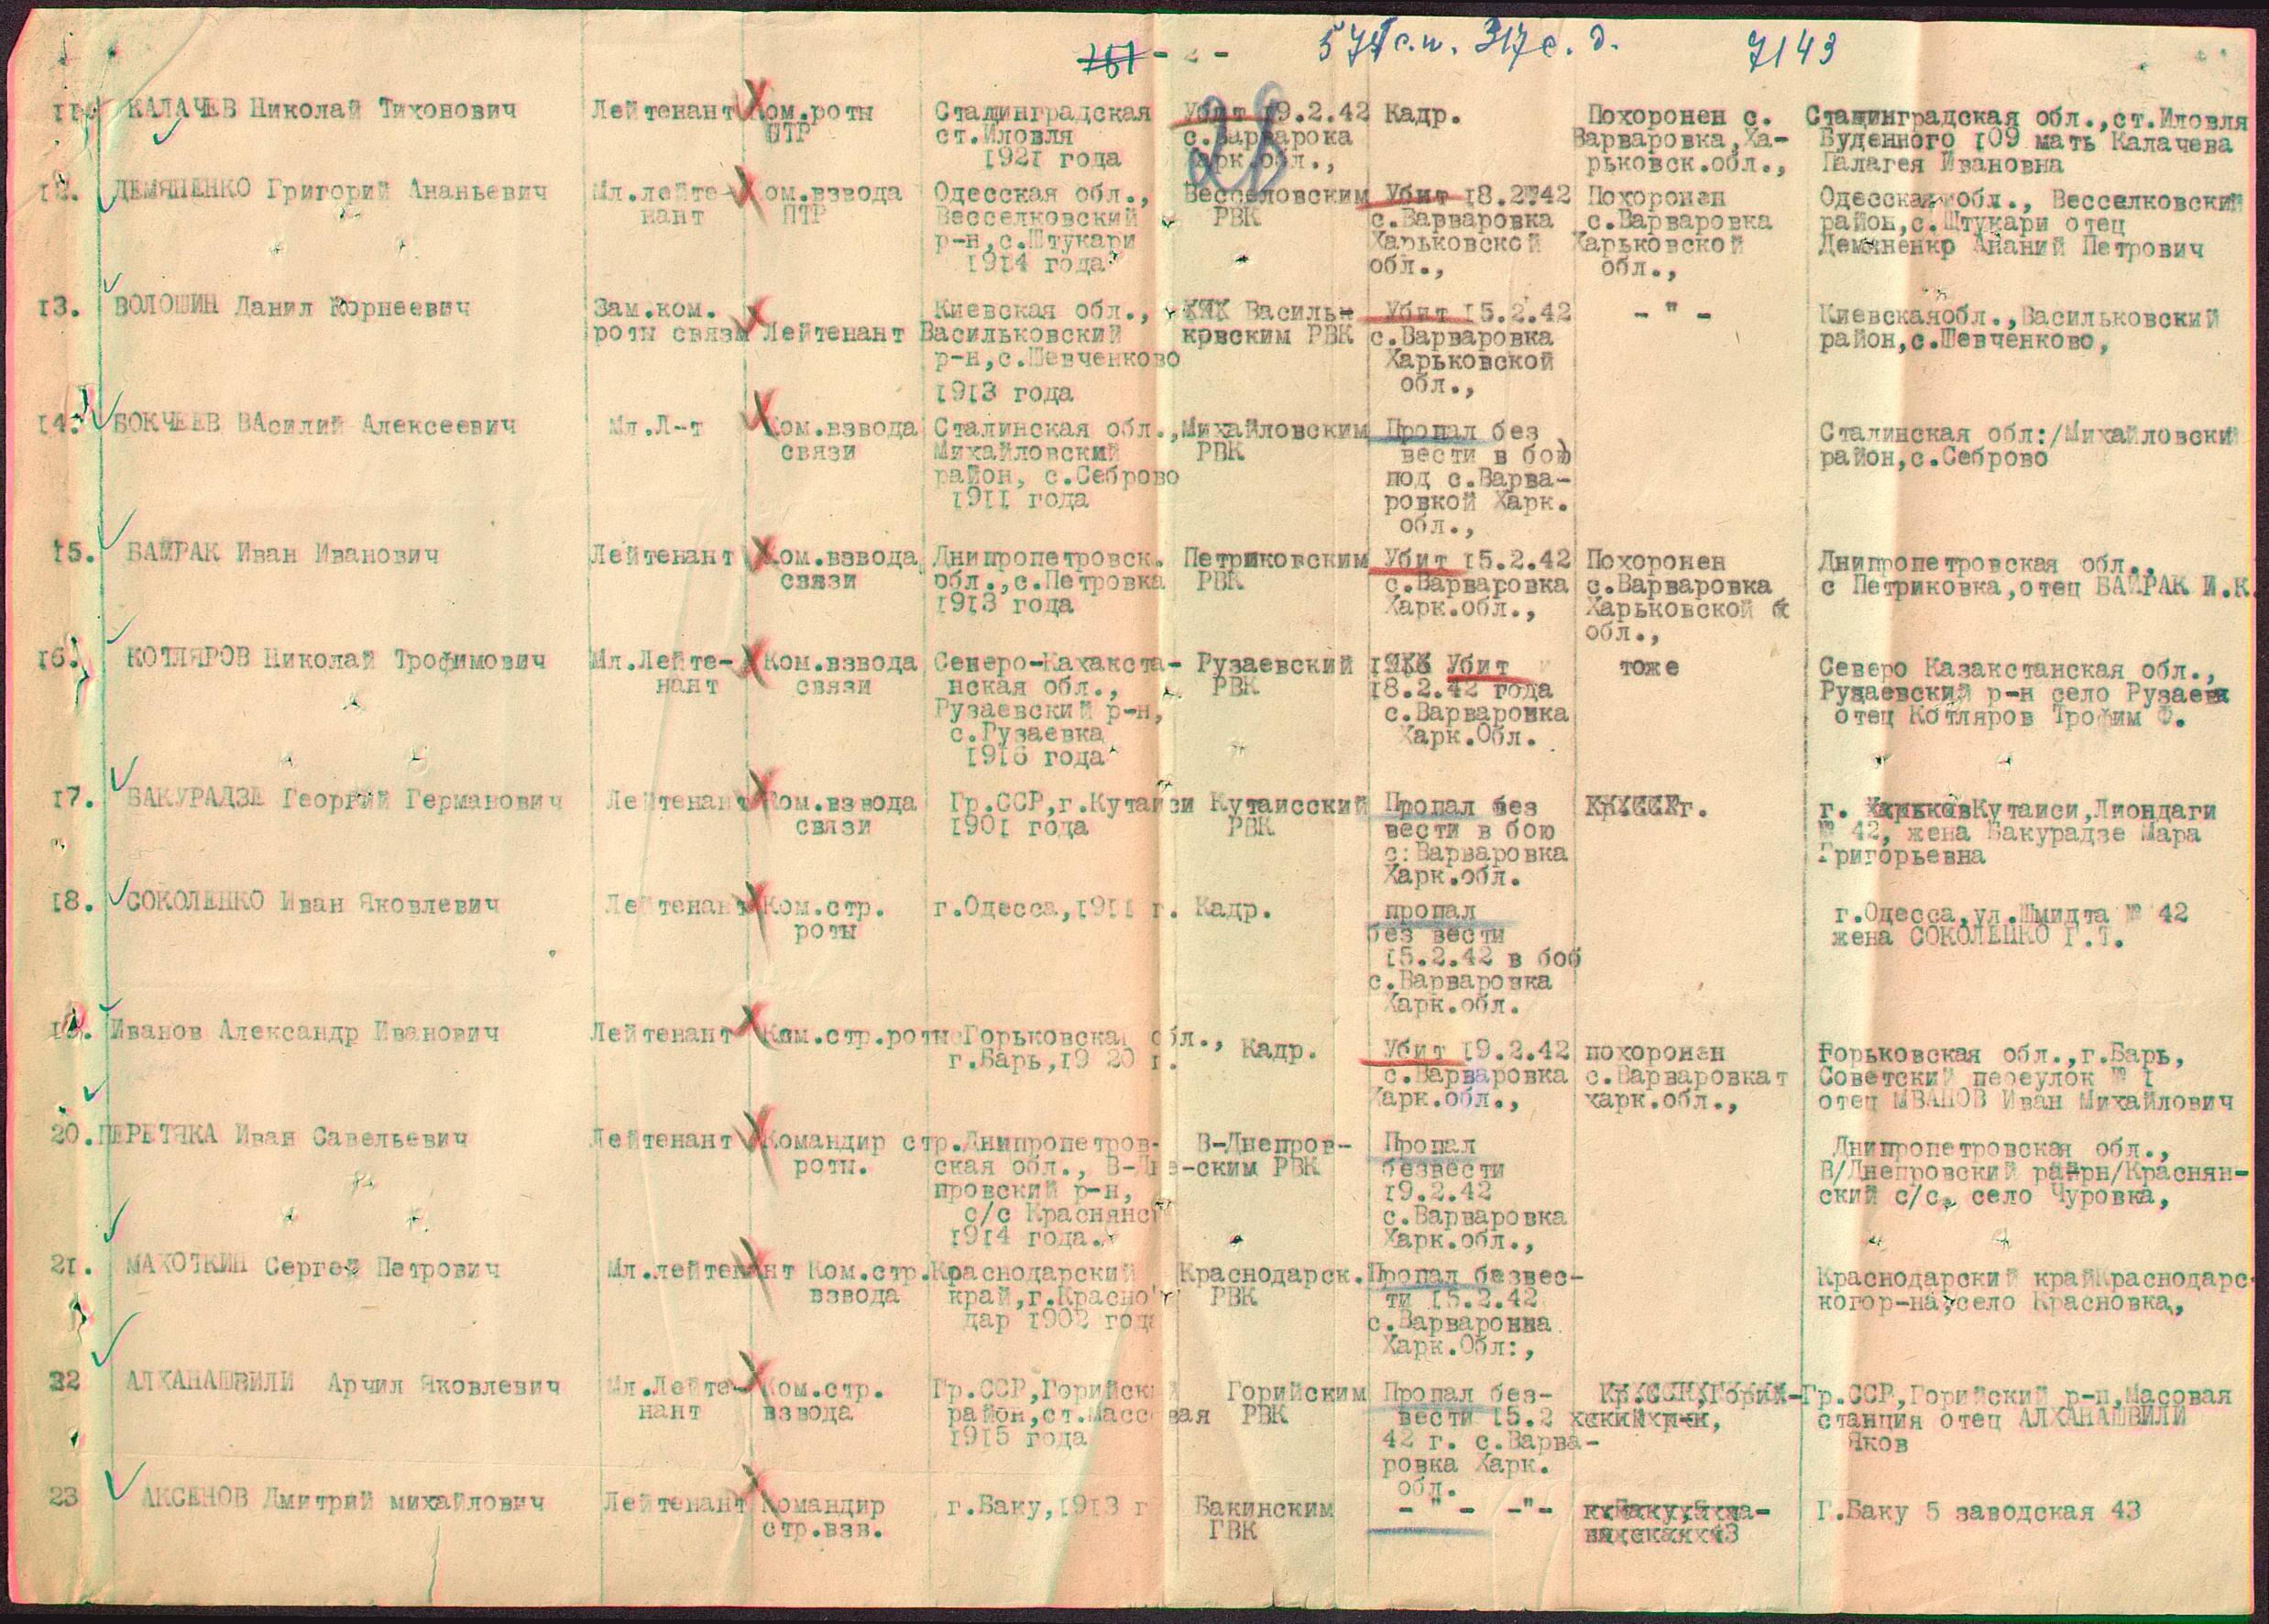 761 - 2 - 571 с.п. 317 с. д. 7143
11. КАЛАЧЕВ Николай Тихонович Лейтенант Ком.роты Сталинградская Убит 19.2.42 Кадр. Похоронен с. Сталинградская обл.,ст.Иловля
ПТР ст.Иловля с.Варварока Варваровка,Ха- Буденного 109 мать Калачева
1921 года Харк.обл., рьковск.обл., Палагея Ивановна
12. ДЕМЯНЕНКО Григорий Ананьевич Мл.лейте- Ком.взвода Одесская обл., Весселовским Убит 18.2.42 Похоронен Одесская обл., Весселковский
нант ПТР Весселковский РВК с.Варваровка с.Варваровка район,с.Штукари отец
р-н,с.Штукари Харьковской Харьковской Демяненко Ананий Петрович
1914 года обл., обл.,
13. ВОЛОШИН Данил Корнеевич Зам.ком. Киевская обл., Василь- Убит 15.2.42 - " - Киевскаяобл.,Васильковский
роты связи Лейтенант Васильковский ковским РВК с.Варваровка район,с.Шевченково,
р-н,с.Шевченково Харьковской
1913 года обл.,
14. БОКЧЕЕВ ВАсилий Алексеевич Мл.Л-т Ком.взвода Сталинская обл., Михайловским Пропал без Сталинская обл:/Михайловский
связи Михайловский РВК вести в бою район,с.Себрово
район, с.Себрово под с.Варва-
1911 года ровкой Харк.
обл.,
15. БАЙРАК Иван Иванович Лейтенант Ком.взвода Днипропетровск. Петриковским Убит 15.2.42 Похоронен Днипропетровская обл.,
связи обл.,с.Петровка РВК с.Варваровка с.Варваровка с Петриковка,отец БАЙРАК И.К.
1913 года Харк.обл., Харьковской
обл.,
16. КОТЛЯРОВ Николай Трофимович Мл.Лейте- Ком.взвода Северо-Кахакста- Рузаевский Убит тоже Северо Казакстанская обл.,
нант связи нская обл., РВК 18.2.42 года Рузаевский р-н село Рузаевя
Рузаевский р-н, с.Варваровка отец Котляров Трофим Ф.
с.Рузаевка Харк.Обл.
1916 года
17. БАКУРАДЗЕ Георгий Германович Лейтенант Ком.взвода Гр.ССР,г.Кутаизи Кутаисский Пропал без г. Кутаиси,Лиондаги
связи 1901 года РВК вести в бою № 42, жена Бакурадзе Мара
с:Варваровка Григорьевна
Харк.обл.
18. СОКОЛЕНКО Иван Яковлевич Лейтенант Ком.стр. г.Одесса,1911 г. Кадр. пропал г.Одесса,ул.Шмидта № 42
роты без вести жена СОКОЛЕНКО Г.Т.
15.2.42 в боб
с.Варваровка
Харк.обл.
19. Иванов Александр Иванович Лейтенант Ком.стр.роты Горьковская обл., Кадр. Убит 19.2.42 похоронен Горьковская обл.,г.Барь,
г.Барь,19 20 г. с.Варваровка с.Варваровкат Советский переулок № 1
Харк.обл., харк.обл., отец ИВАНОВ Иван Михайлович
20. ПЕРЕТЯКА Иван Савельевич Лейтенант Командир стр. Днипропетров- В-Днепров- Пропал Днипропетровская обл.,
роты. ская обл., В-Дне- -ским РВК безвести В/Днепровский район/Краснян-
провский р-н, 19.2.42 ский с/с, село Чуровка,
с/с Краснянс с.Варваровка
1914 года. Харк.обл.,
21. МАХОТКИН Сергей Петрович Мл.лейтенант Ком.стр. Краснодарский Краснодарск. Пропал безвес- Краснодарский крайКраснодарс-
взвода край,г.Красно РВК ти 15.2.42 когор-на,село Красновка,
дар 1902 года с.Варваровка
Харк.Обл:,
22 АЛХАНАШВИЛИ Арчил Яковлевич Мл.Лейте- Ком.стр. Гр.ССР,Горийский Горийским Пропал без- Гр.ССР,Горийский р-н,Масовая
нант взвода район,ст.Массовая РВК вести 15.2 станция отец АЛХАНАШВИЛИ
1915 года 42 г. с.Варва- Яков
ровка Харк.
обл.
23 АКСЕНОВ Дмитрий михайлович Лейтенант Командир г.Баку,1913 г Бакинским - " - -"- Г.Баку 5 заводская 43
стр.взв. ГВК